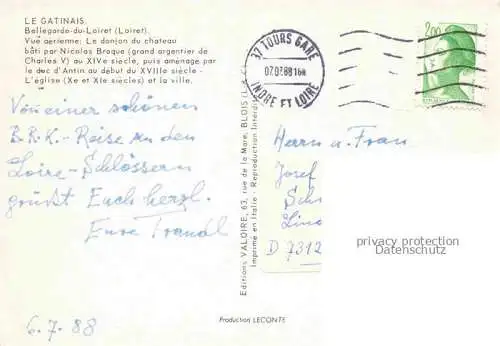 LE GATINAIS.
Bellegarde-du-Loiret (Loiret).
Vue aérienne: Le donjon du chateau
bâti par Nicolas Braque (grand argentier de
Charles V) au XIVe siècle, puis aménagé par
le duc d'Antin au début du XVIIIe siècle -
L'église (Xe et XIe siècles) et la ville.
37 TOURS GARE
INDRE ET LOIRE
2,00
Von einer schönen
B.R.K.-Reise zu den
Loire-Schlössern
grüßt Euch herzl.
Eure Traudl
6.7.88
Editions VALOIRE, 63, rue de la Mare, BLOIS
Imprimé en Italie - Reproduction Interdite
Herrn u. Frau
Josef
D 7312
privacy protection
Datenschutz
Production LECONTE